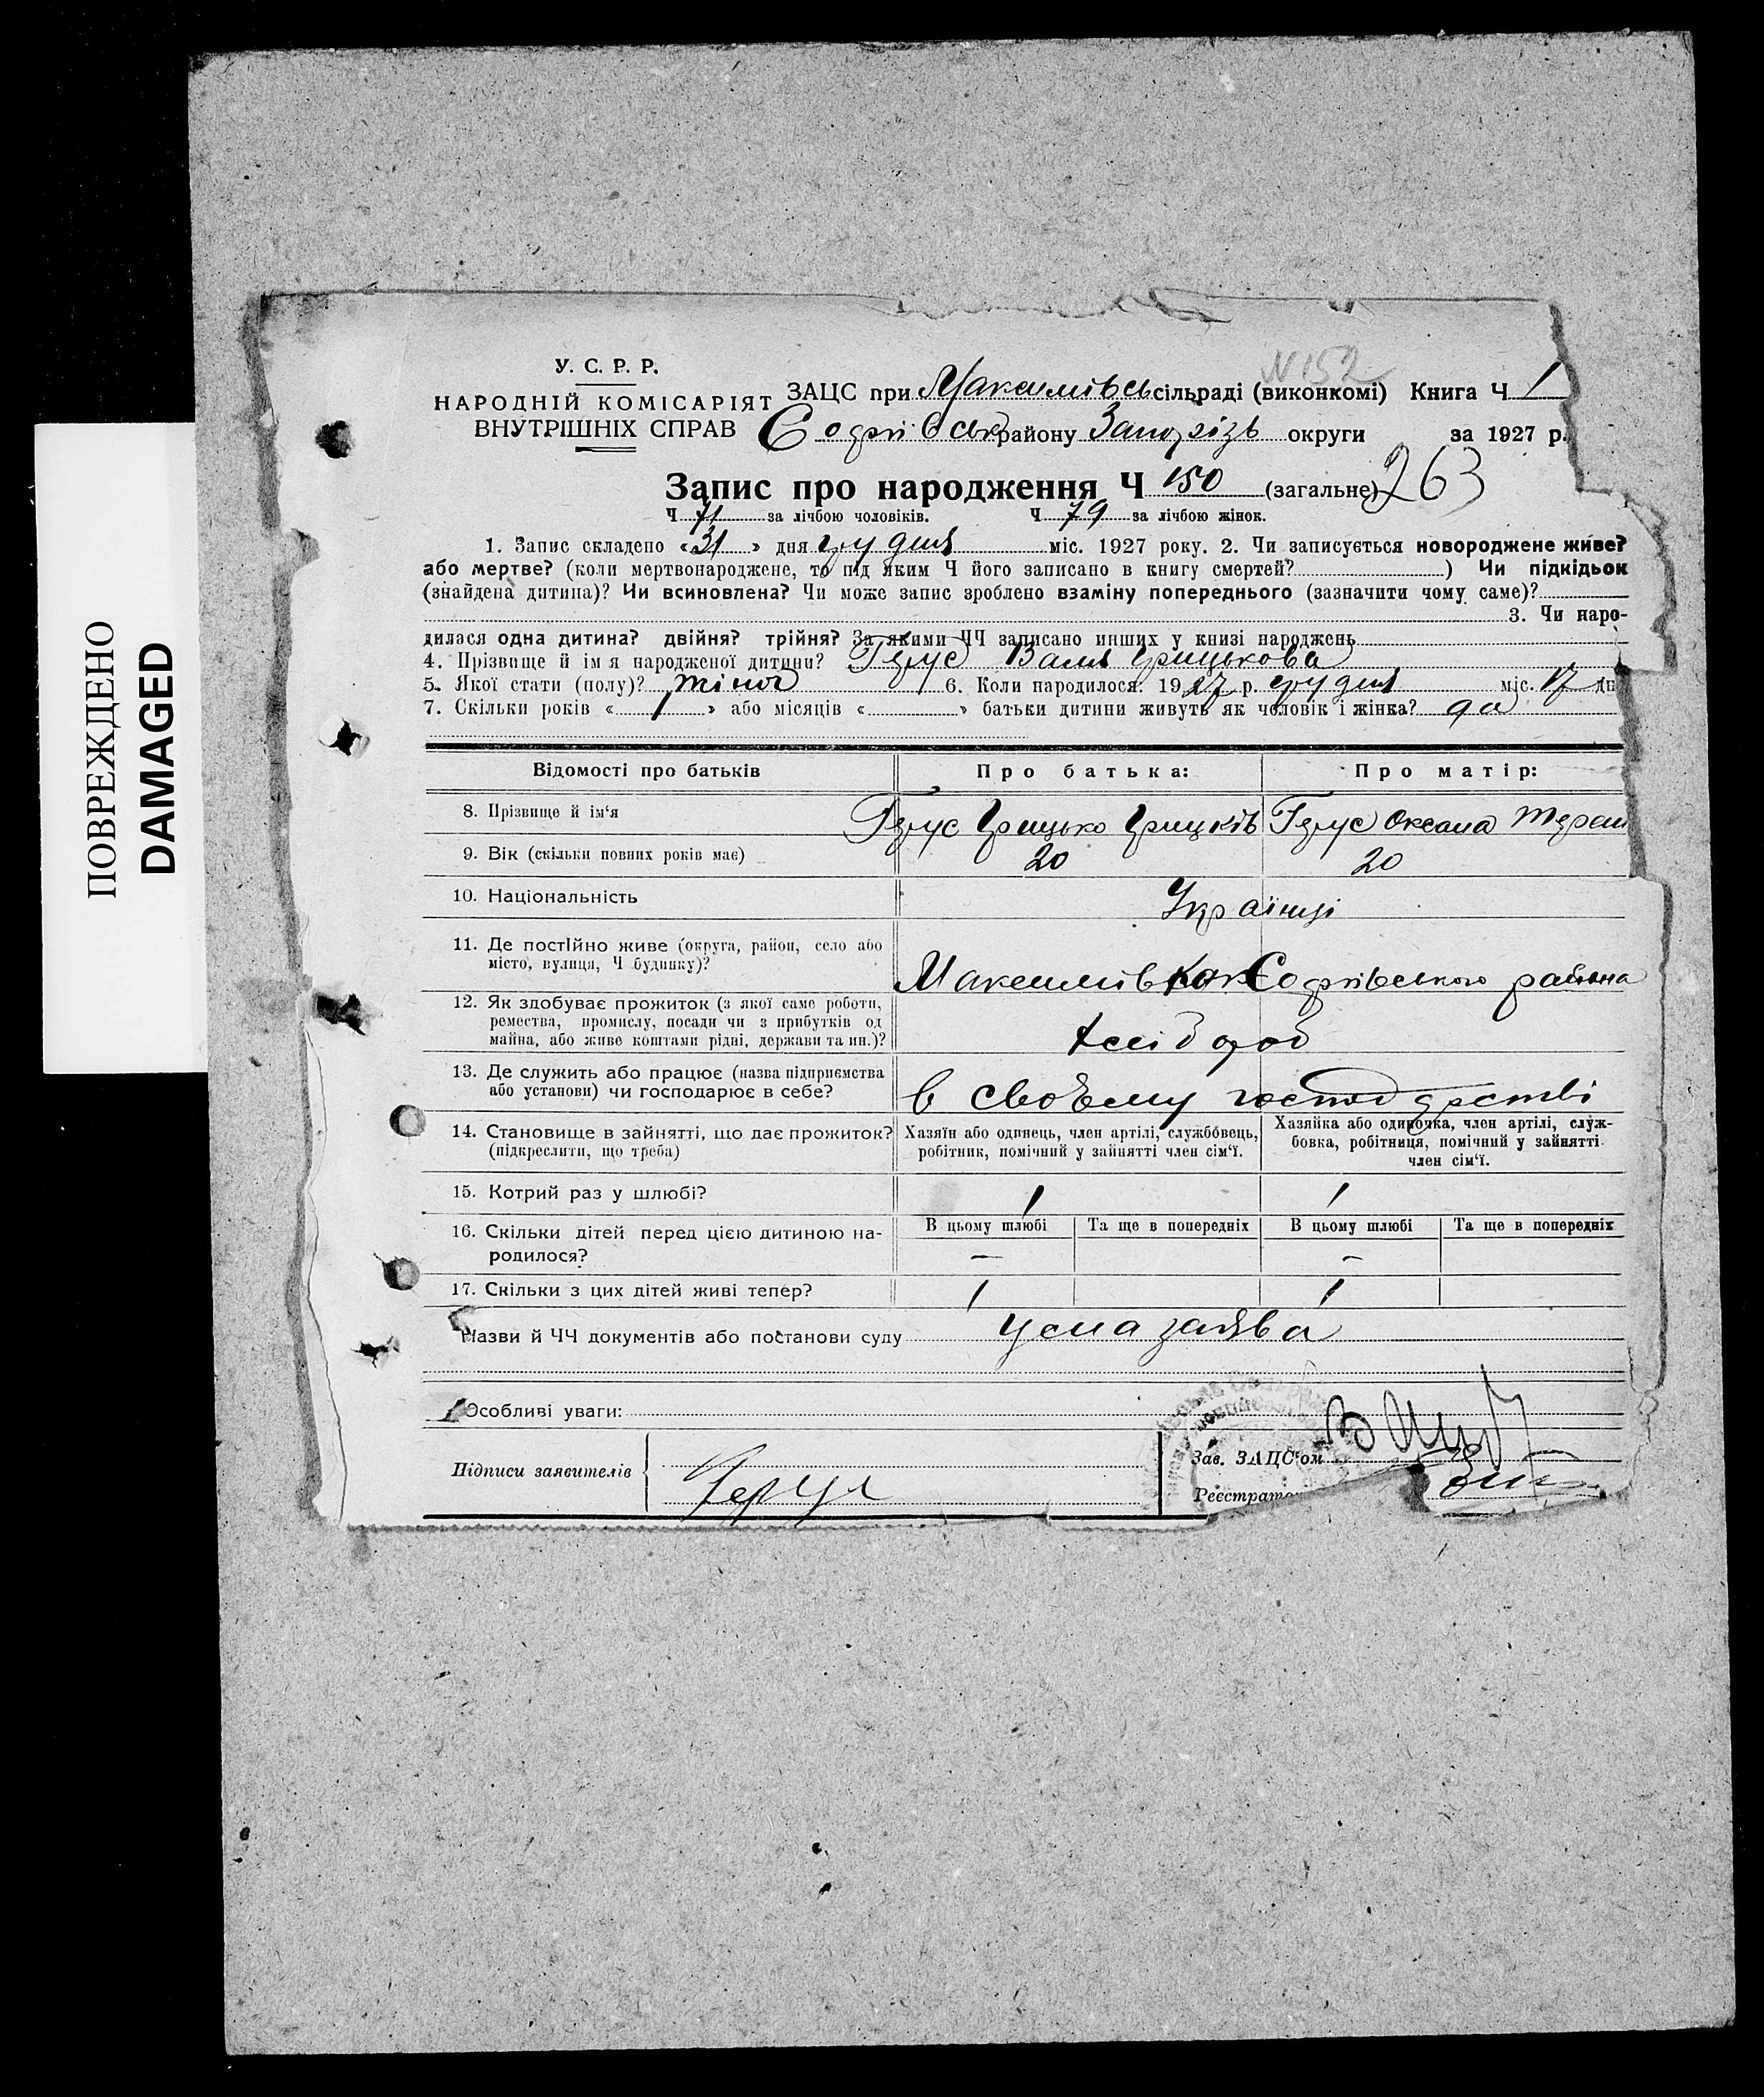 ПОВРЕЖДЕНО
DAMAGED
У. С. Р. Р.
НАРОДНІЙ КОМІСАРІЯТ
ВНУТРІШНІХ СПРАВ
N 152
ЗАЦС при Максимівсь сільраді (виконкомі) Книга Ч 1
Софіївськ району Запорізь округи за 1927 р.
Запис про народження Ч 150 (загальне) 263
Ч 71 за лічбою чоловіків. Ч 79 за лічбою жінок.
1. Запис складено «31» дня грудня міс. 1927 року. 2. Чи записується новороджене живе?
або мертве? (коли мертвонароджене, то під яким Ч його записано в книгу смертей? ) Чи підкідьок
(знайдена дитина)? Чи всиновлена? Чи може запис зроблено взаміну попереднього (зазначити чому саме)?
3. Чи наро-
дилася одна дитина? двійня? трійня? За якими ЧЧ записано инших у книзі народжень
4. Прізвище й імя народженої дитини? Герус Валя Грицькова
5. Якої стати (полу)? жіноч 6. Коли народилося: 1927 р. грудня міс. 17 дн
7. Скільки років « 1 » або місяців « » батьки дитини живуть як чоловік і жінка? да
Відомості про батьків Про батька: Про матір:
8. Прізвище й ім'я Герус Грицько Грицків Герус Оксана Тереш
9. Вік (скільки повних років має) 20 20
10. Національність Українці
11. Де постійно живе (округа, район, село або
місто, вулиця, Ч будинку)?
Максимівка Софіївського района
12. Як здобуває прожиток (з якої саме роботи,
ремества, промислу, посади чи з прибутків од
майна, або живе коштами рідні, держави та ин.)?
хлібороб
13. Де служить або працює (назва підприємства
або установи) чи господарює в себе?
в своєму господарстві
14. Становище в зайнятті, що дає прожиток?
(підкреслити, що треба)
Хазяїн або одинець, член артілі, службовець,
робітник, помічний у зайнятті член сім'ї.
Хазяйка або одиночка, член артілі, служ-
бовка, робітниця, помічний у зайнятті
член сім'ї.
15. Котрий раз у шлюбі? 1 1
16. Скільки дітей перед цією дитиною на-
родилося?
В цьому шлюбі Та ще в попередніх В цьому шлюбі Та ще в попередніх
— –
17. Скільки з цих дітей живі тепер? 1 1
Назви й ЧЧ документів або постанови суду Усна заява
Особливі уваги:
Підписи заявителів Герус
Зав. ЗАЦС'ом
Реєстрато